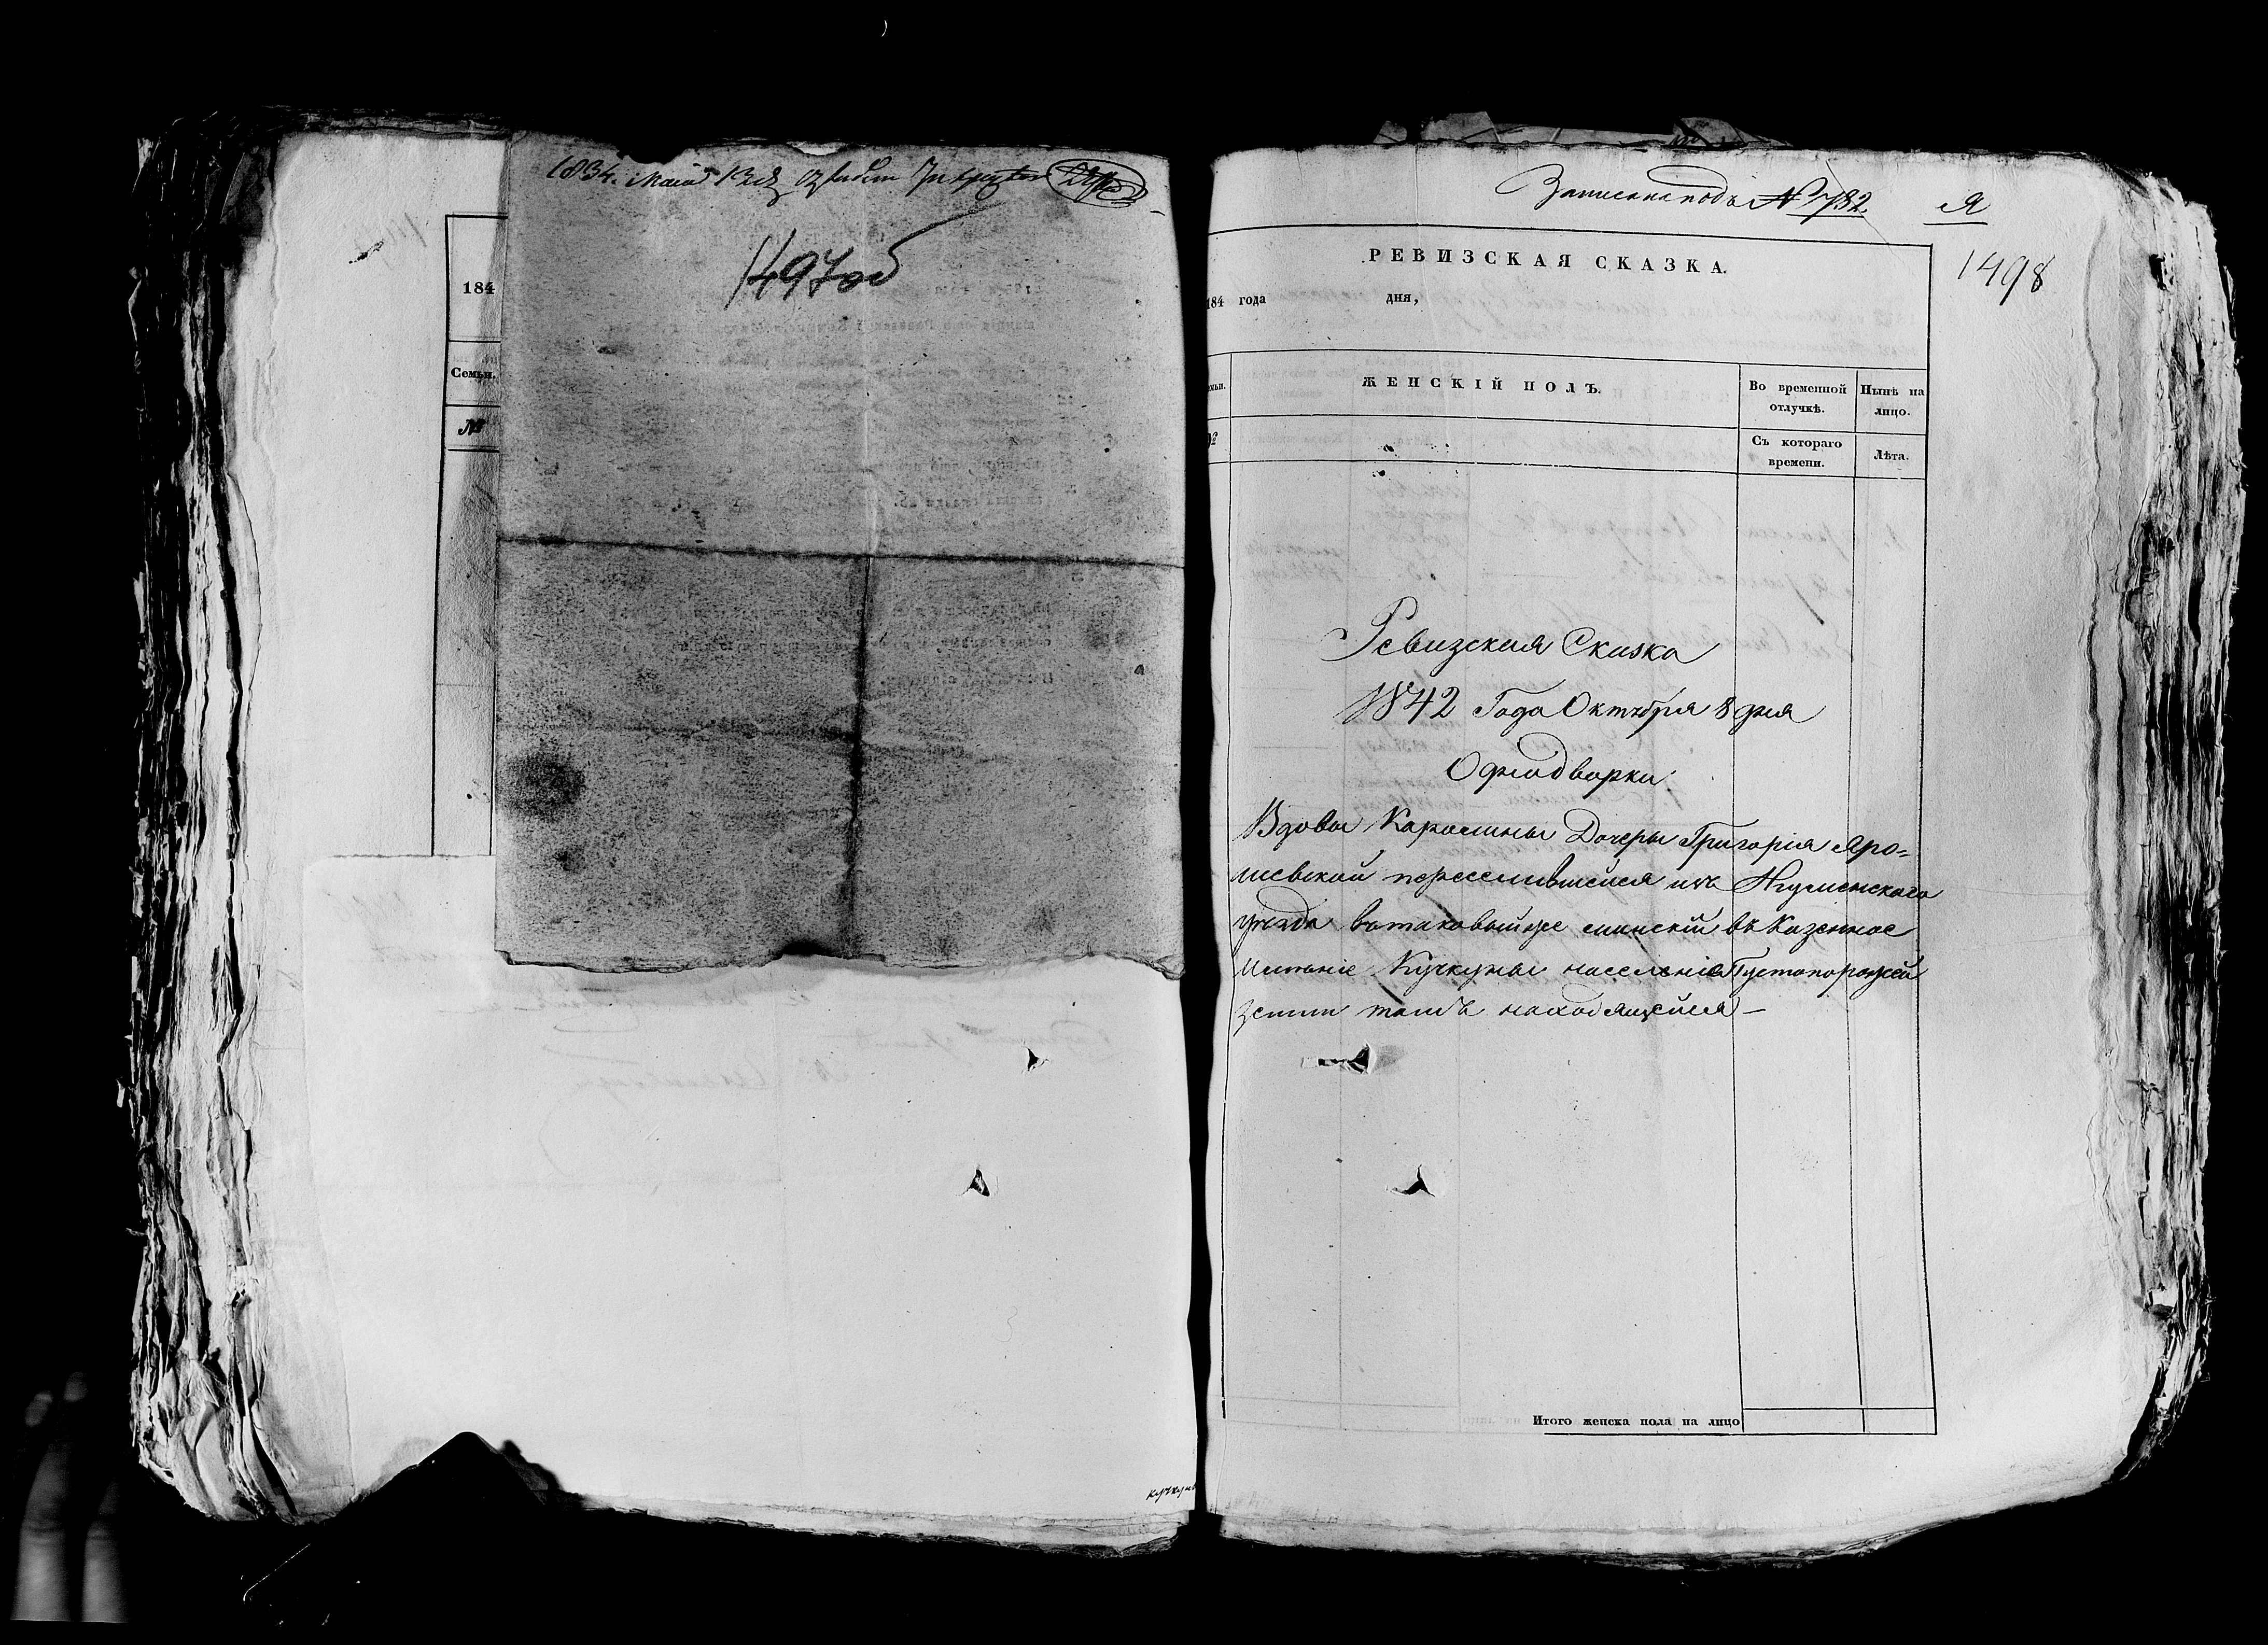 1834. Маія 13 д.
1497 об
184
Семьи.
№
кучкун
Записана подъ № 732. Я
1498
РЕВИЗСКАЯ СКАЗКА.
184 года дня,
ЖЕНСКІЙ ПОЛЪ.
Во временной отлучкѣ.
Нынѣ на лицо.
№
Съ котораго времени.
Лѣта.
Ревизская Сказка
1842 Года Октября 8 дня
Однодворки
Вдовы Каролины Дочеры Григорія Яро=
шевской переселившейся изъ Игуменскаго
уѣзда въ таковый же минскій въ Казенное
Имѣніе Кучкуны населеніе Пустопорожей
земли тамъ находящейся —
Итого женска пола на лицо